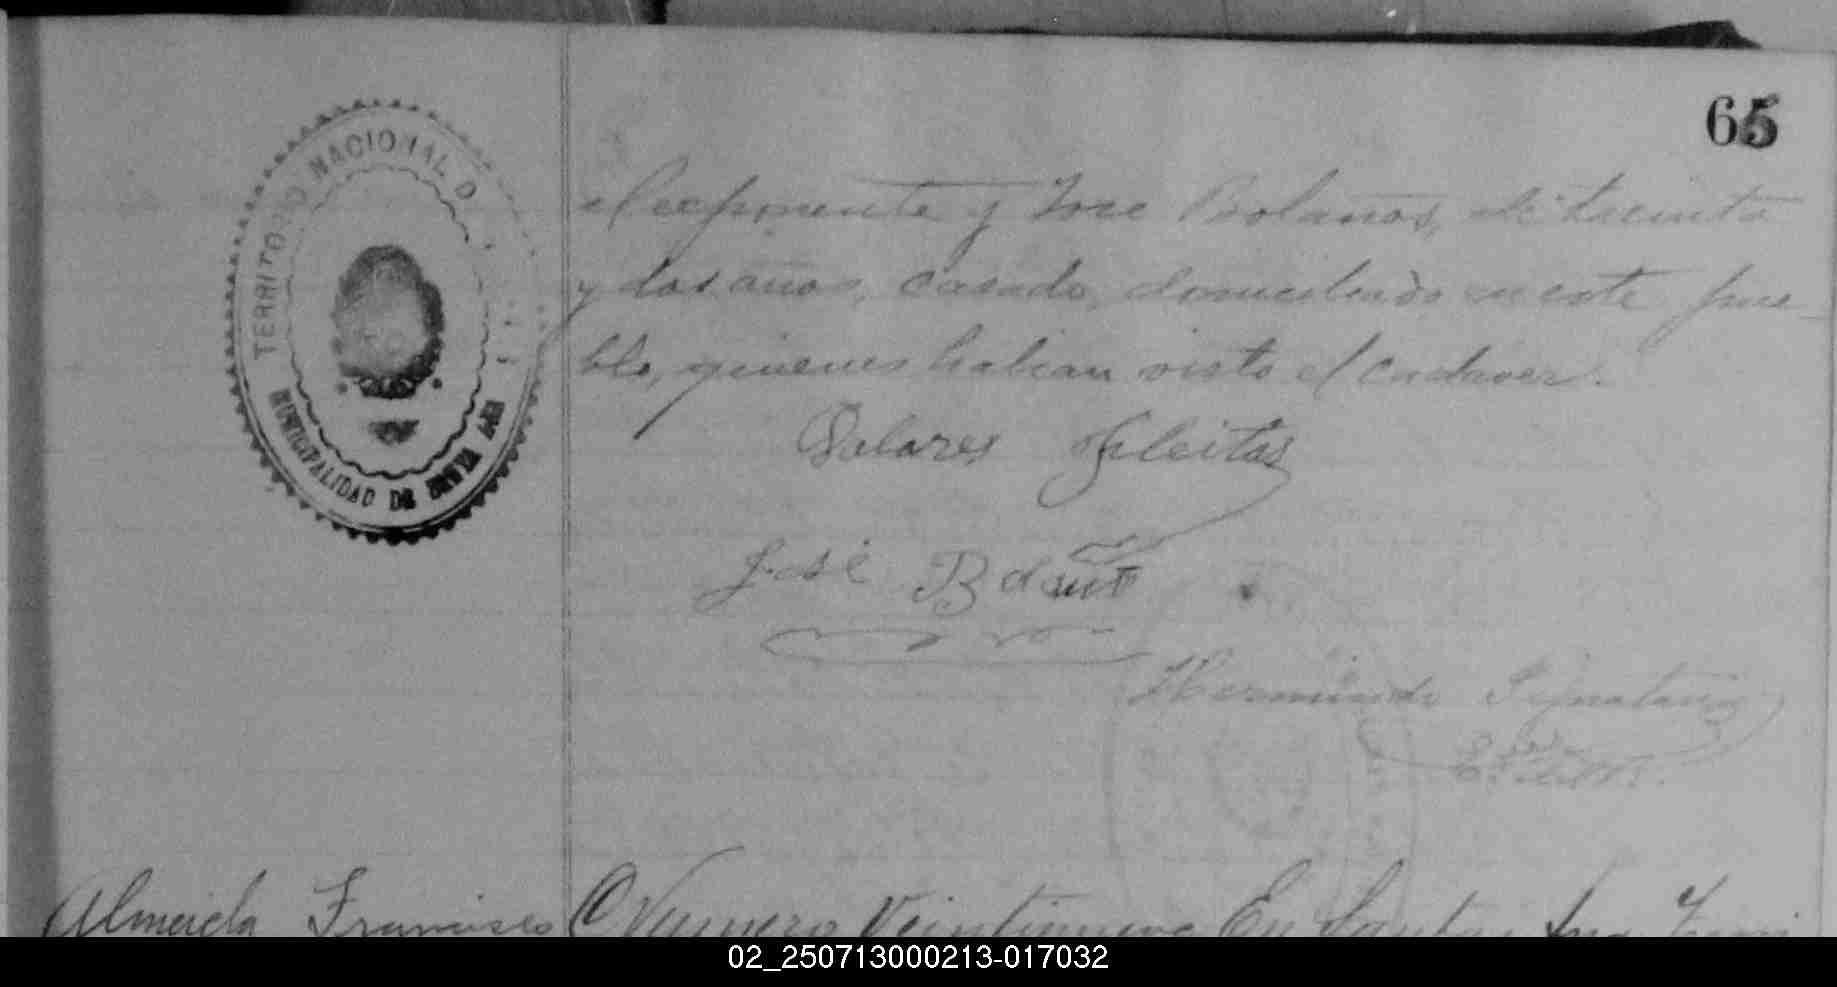 65
TERRITORIO NACIONAL D
MUNICIPALIDAD DE SANTA ANA
el exponente y Jose Bolaños, de treinta
y dos años, casado, domiciliado en este pue-
blo, quienes habian visto el cadaver.
Fleitas
José Bolaño
Hermindo
Almeida Francisco
Numero Veintinueve En Santa Ana Terri
02_250713000213-017032